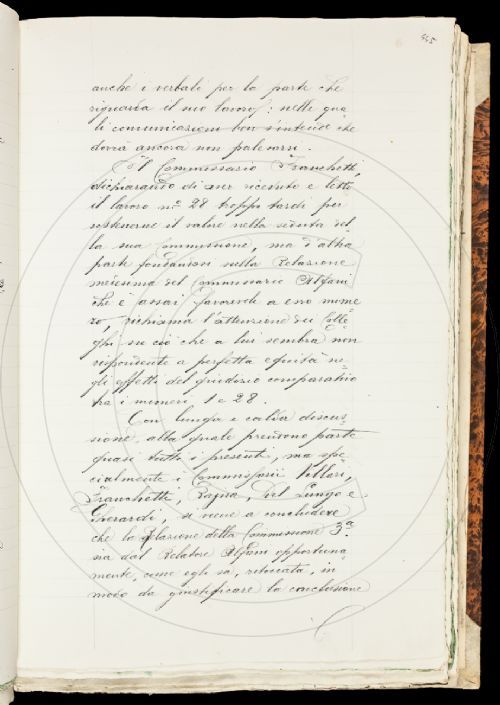 445
anche i verbali per la parte che
riguarda il suo lavoro: nelle qua
li comunicazioni ben s'intende che
dovrà ancora non palesarsi.
Il Commissario Franchetti,
dichiarando di aver ricevuto e letto
il lavoro nº 28 troppo tardi per
sostenerne il valore nella seduta del
la sua Commissione, ma d'altra
parte fondandosi nella Relazione
medesima del Commissario Alfani
che è assai favorevole a esso nume
ro, richiama l'attenzione dei Colle=
ghi su ciò che a lui sembra non
rispondente a perfetta equità ne=
gli effetti del giudizio comparativo
tra i numeri 1 e 28.
Con lunga e calda discus=
sione, alla quale prendono parte
quasi tutti i presenti, ma spe=
cialmente i Commissari Villari,
Franchetti, Rajna, Del Lungo e
Gherardi, si viene a concludere
che la Relazione della Commissione 3ª
sia dal Relatore Alfani opportuna=
mente, come egli sa, ritoccata, in
modo da giustificare la conclusione